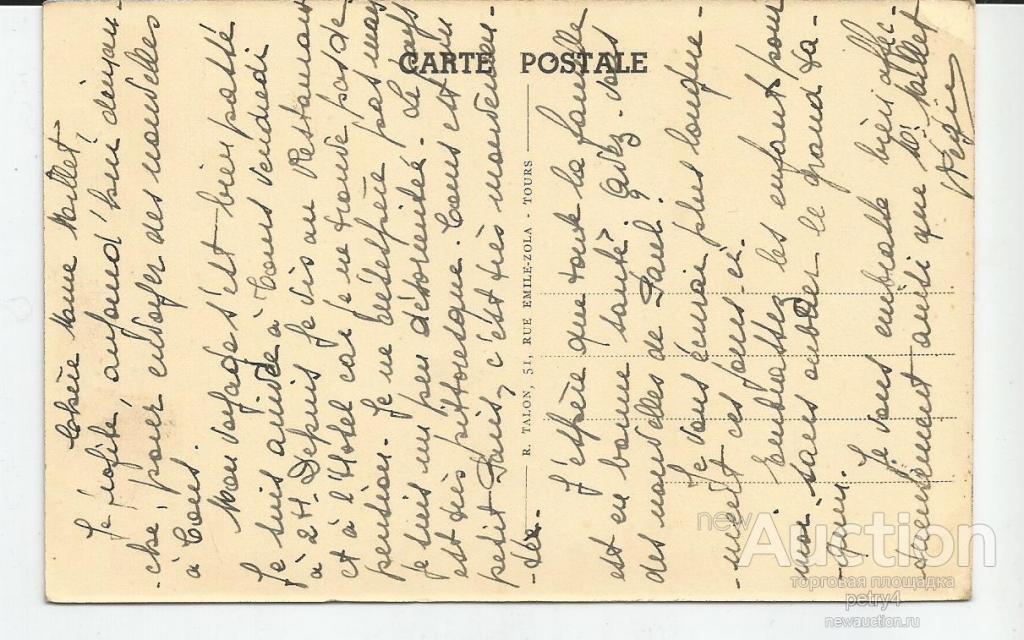 CARTE POSTALE
R. TALON, 51, RUE EMILE-ZOLA - TOURS
Chère Mame Mallet
Je profite, aujourd'hui diman-
-che, pour envoyer des nouvelles
à Tous.
Mon voyage s'est bien passé
Je suis arrivée à Tours Vendredi
à 2H. Depuis je vis au Restaurant
et à l'Hotel car je ne trouve pas de
pension. Je ne désespère pas mais
Je suis un peu désorientée. Le Pays
est très pittoresque. Tours est un
petit Paris, c'est très mondain
J'espère que toute la famille
est en bonne santé. Avez-vous
des nouvelles de Paul?
Je vous écrirai plus longue-
-ment ces jours-ci.
Embrassez les enfants pour
moi sans oublier le grand
Je vous embrasse bien affec-
-tueusement ainsi que Mr Mallet
newAuction
торговая площадка
petry4
newauction.ru